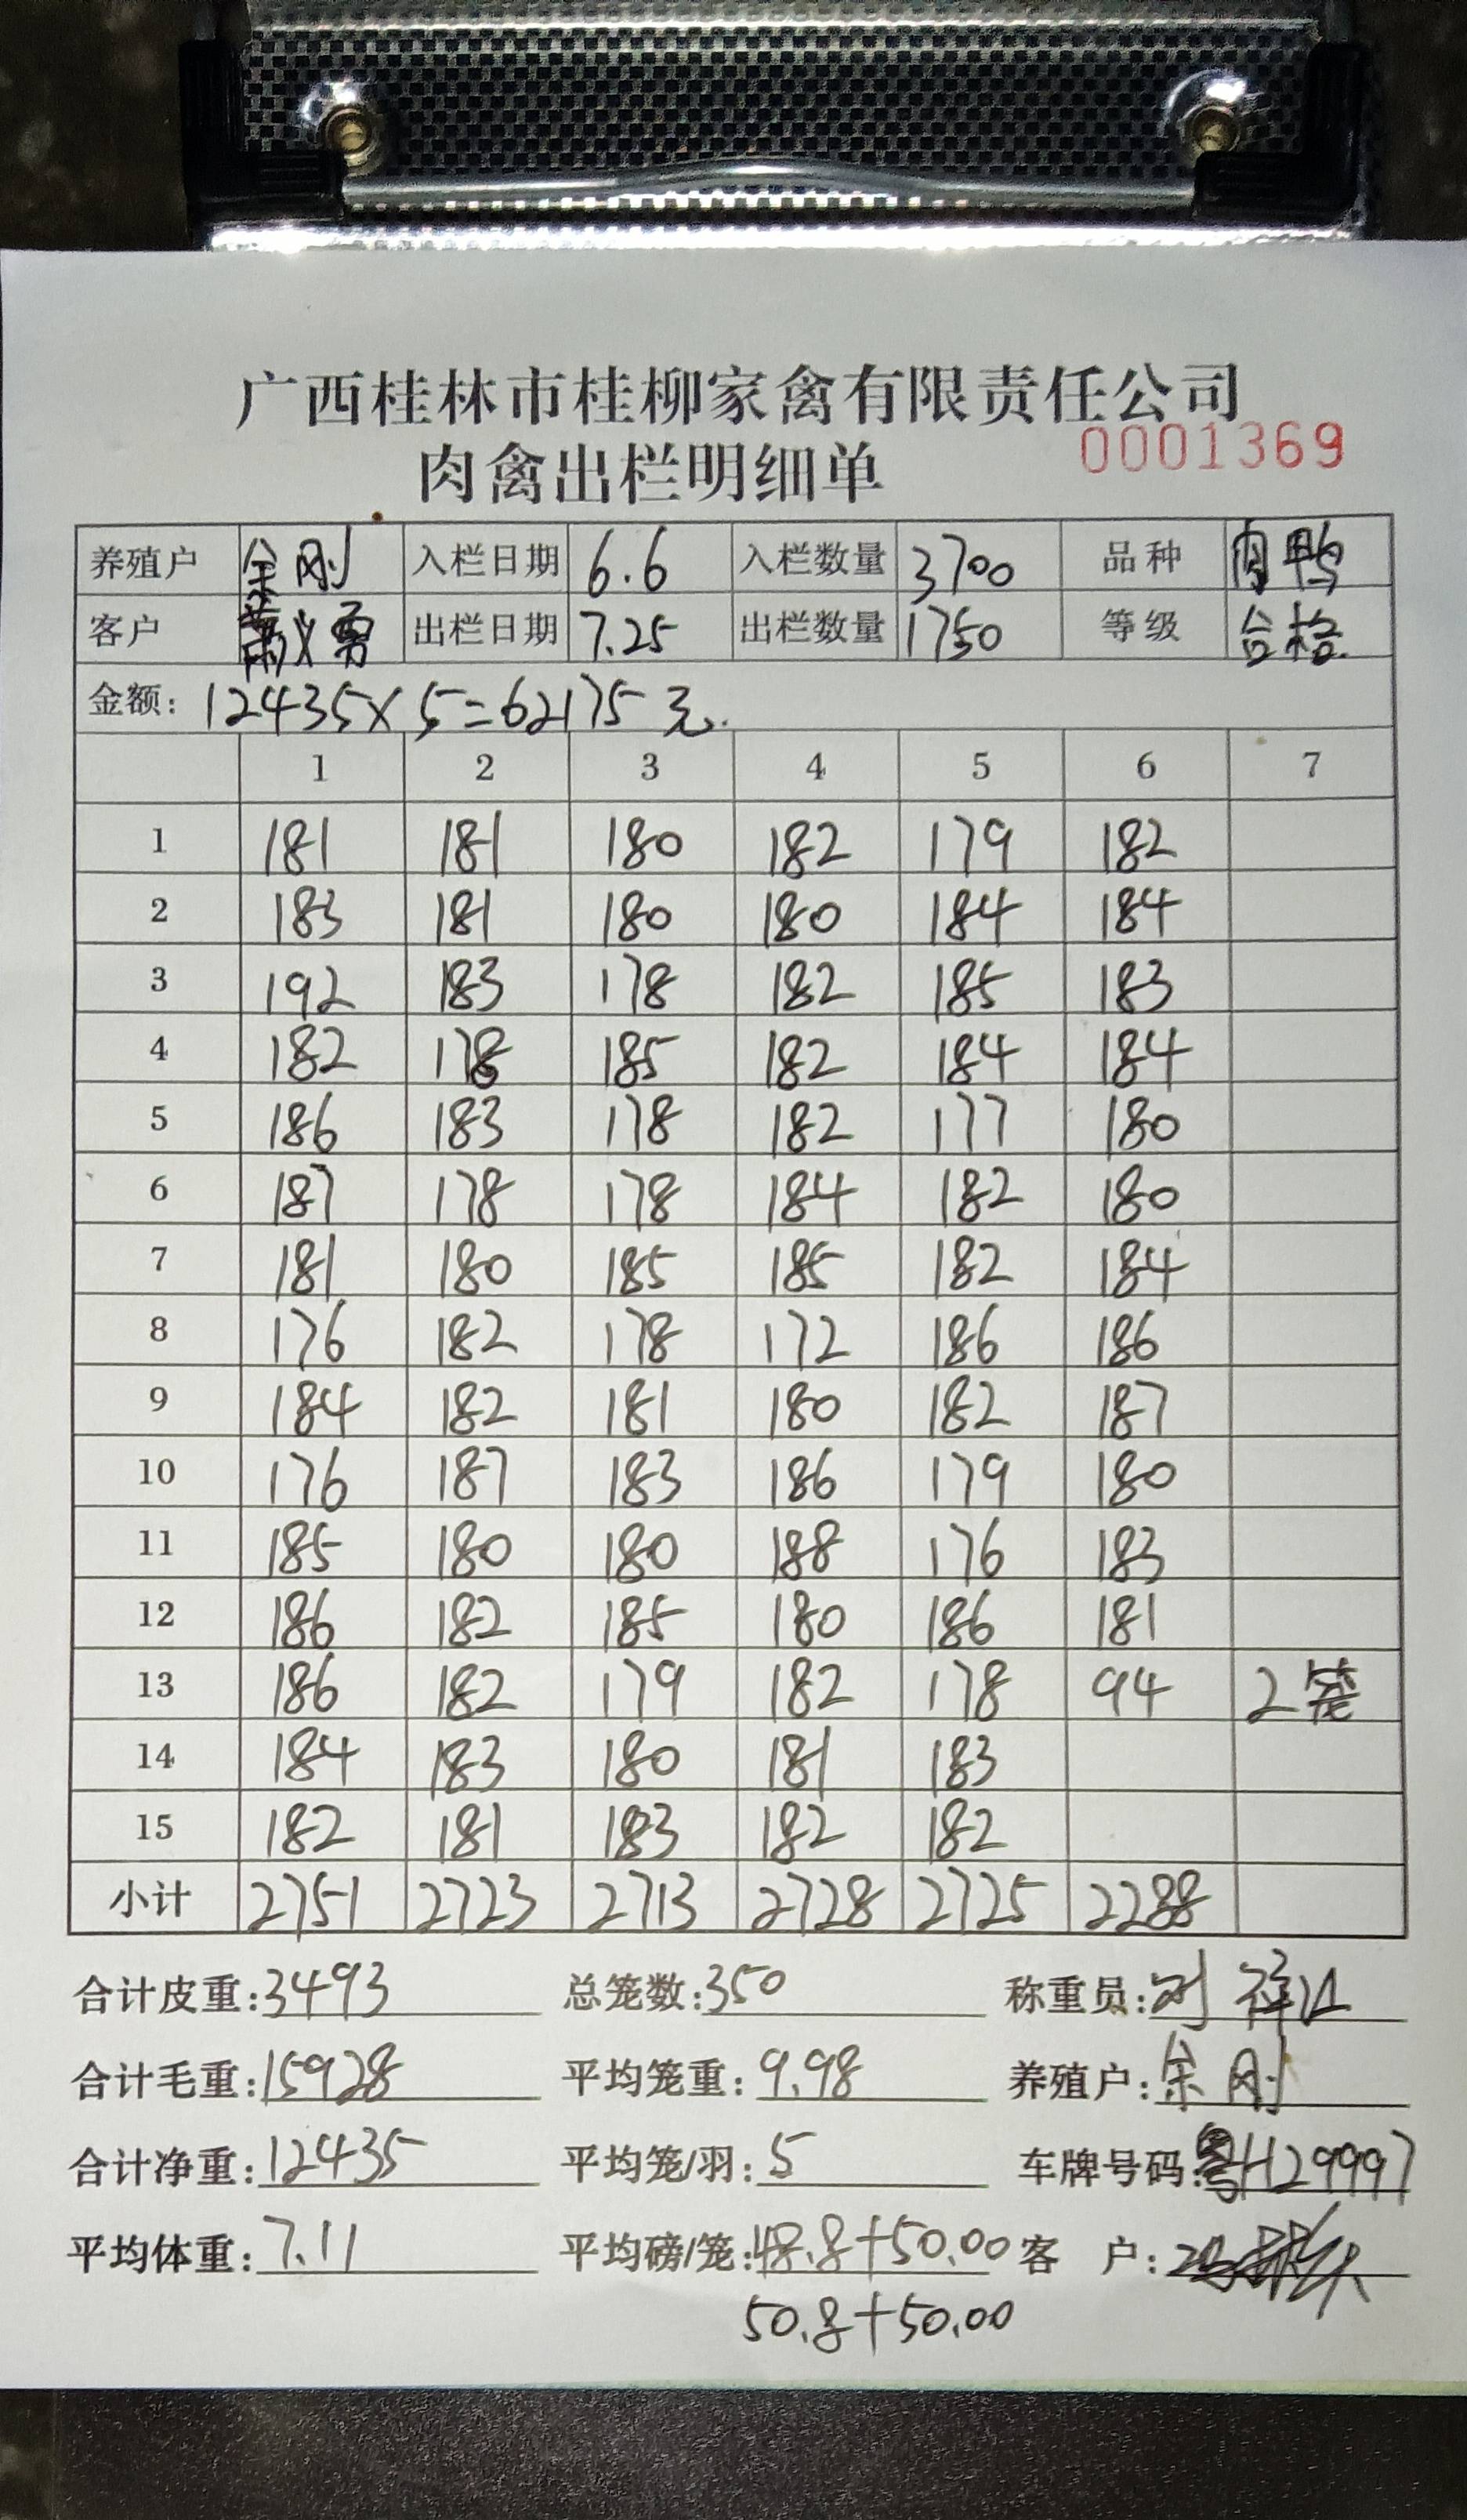 广西桂林市桂柳家禽有限责任公司
肉禽出栏明细单 0001369
养殖户 余刚 入栏日期 6.6 入栏数量 3700 品种 肉鸭
客户 勇 出栏日期 7.25 出栏数量 1750 等级 合格
金额: 12435×5=62175元.
1 2 3 4 5 6 7
1 181 181 180 182 179 182
2 183 181 180 180 184 184
3 192 183 178 182 185 183
4 182 178 185 182 184 184
5 186 183 178 182 177 180
6 187 178 178 184 182 180
7 181 180 185 185 182 184
8 176 182 178 172 186 186
9 184 182 181 180 182 187
10 176 187 183 186 179 180
11 185 180 180 188 176 183
12 186 182 185 180 186 181
13 186 182 179 182 178 94 2笼
14 184 183 180 181 183
15 182 181 183 182 182
小计 2751 2723 2713 2728 2725 2288
合计皮重:3493 总笼数:350 称重员:
合计毛重:15928 平均笼重:9.98 养殖户:余刚
合计净重:12435 平均笼/羽:5 车牌号码:粤H29997
平均体重:7.11 平均磅/笼:48.8+50.00 客 户:
50.8+50.00